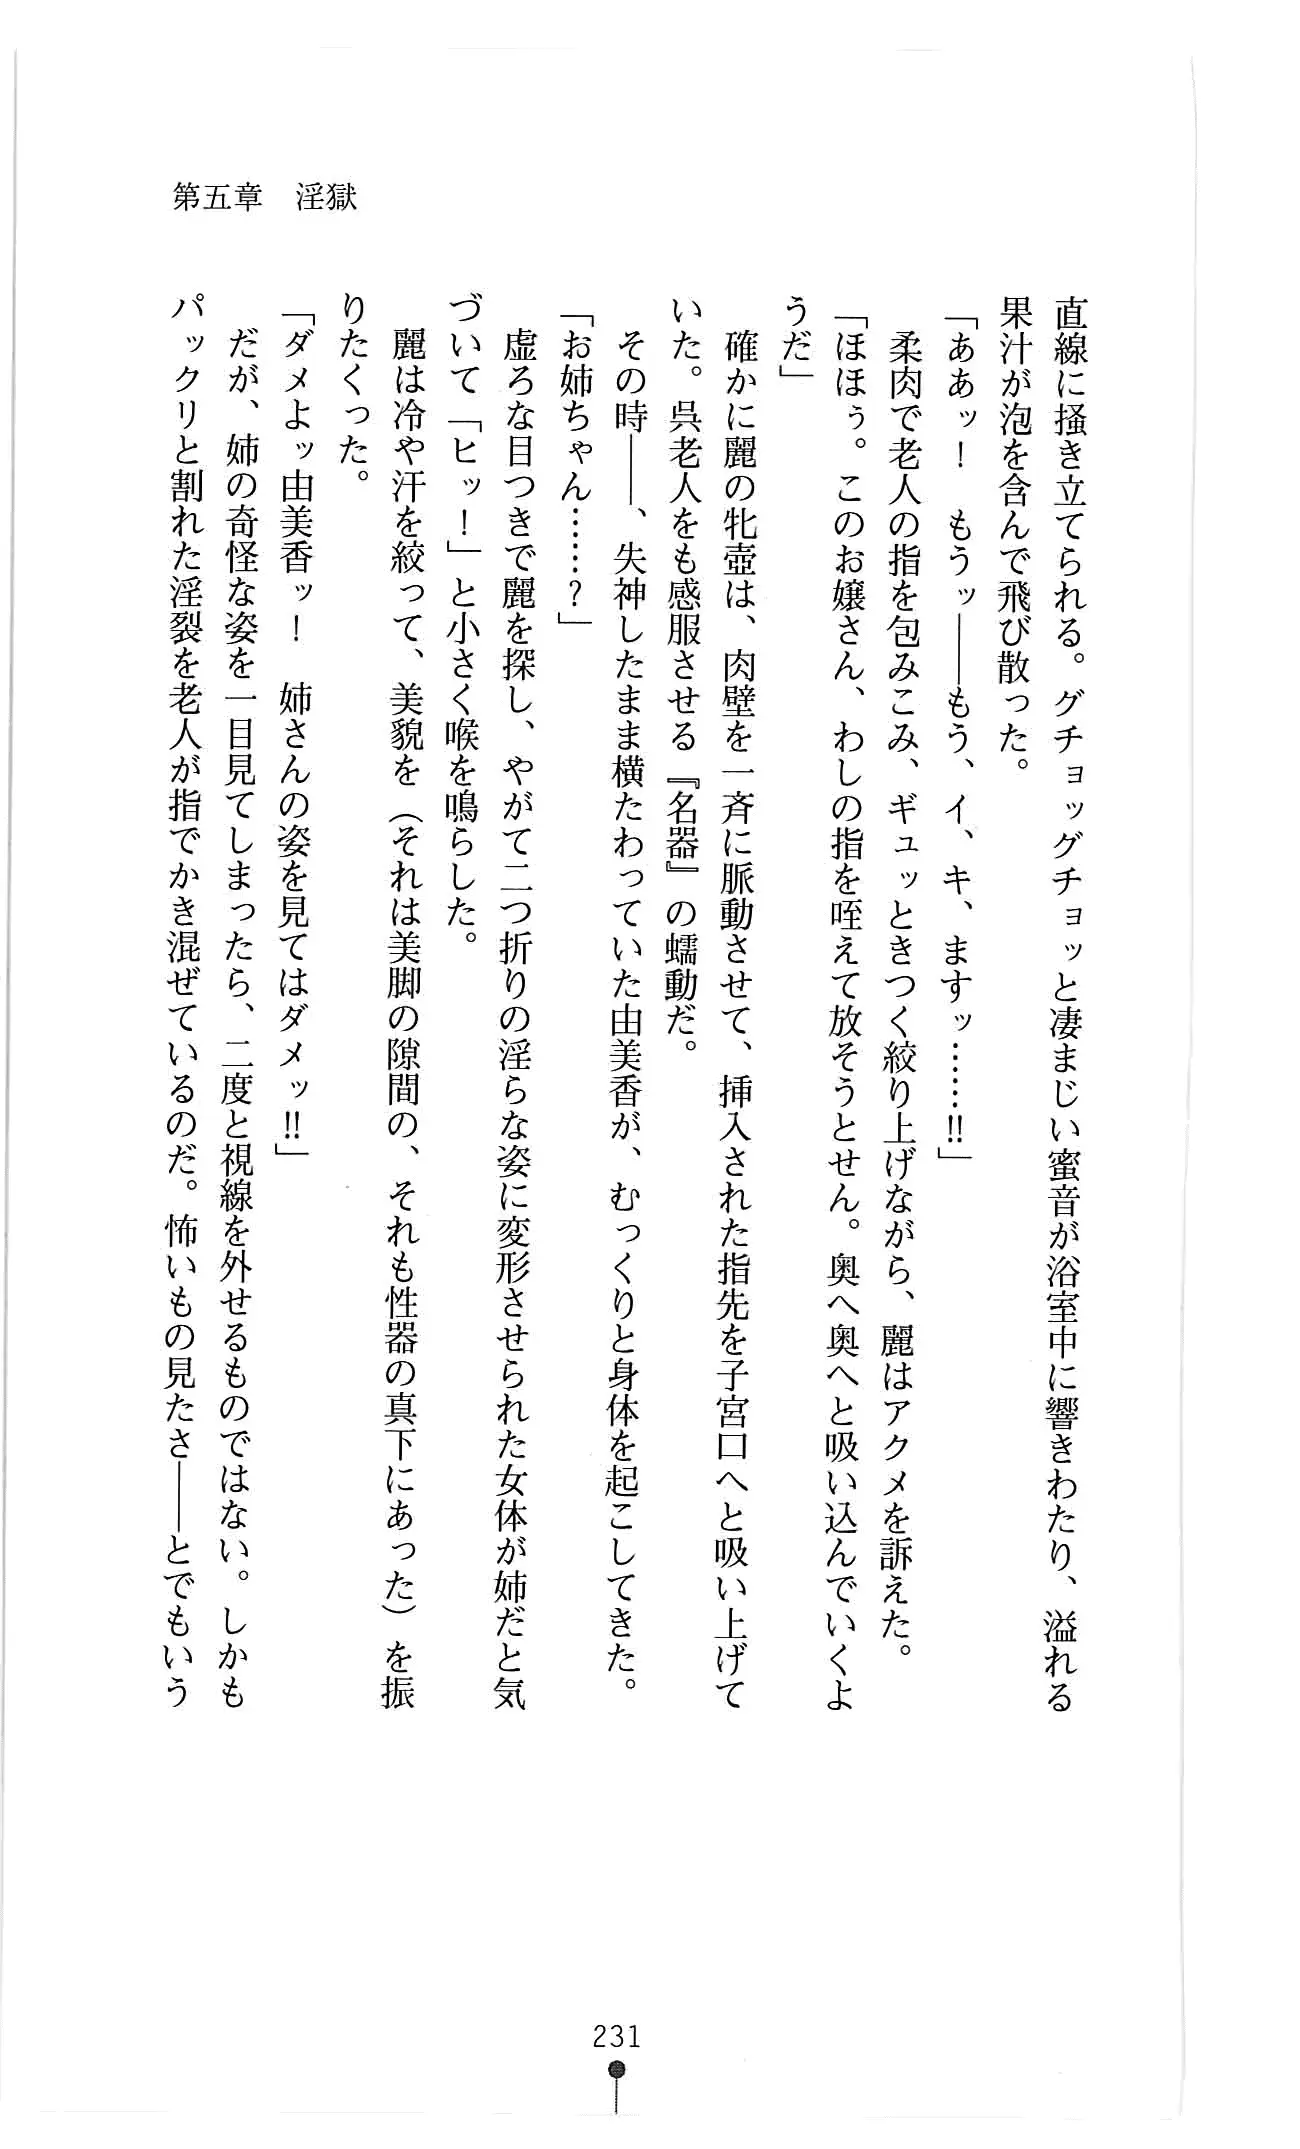 第五章　淫獄
直線に掻き立てられる。グチョッグチョッと凄まじい蜜音が浴室中に響きわたり、溢れる
果汁が泡を含んで飛び散った。
「ああッ！　もうッ――もう、イ、キ、ますッ……!!」
　柔肉で老人の指を包みこみ、ギュッときつく絞り上げながら、麗はアクメを訴えた。
「ほほぅ。このお嬢さん、わしの指を咥えて放そうとせん。奥へ奥へと吸い込んでいくよ
うだ」
　確かに麗の牝壺は、肉壁を一斉に脈動させて、挿入された指先を子宮口へと吸い上げて
いた。呉老人をも感服させる『名器』の蠕動だ。
　その時――、失神したまま横たわっていた由美香が、むっくりと身体を起こしてきた。
「お姉ちゃん……？」
　虚ろな目つきで麗を探し、やがて二つ折りの淫らな姿に変形させられた女体が姉だと気
づいて「ヒッ！」と小さく喉を鳴らした。
　麗は冷や汗を絞って、美貌を（それは美脚の隙間の、それも性器の真下にあった）を振
りたくった。
「ダメよッ由美香ッ！　姉さんの姿を見てはダメッ!!」
　だが、姉の奇怪な姿を一目見てしまったら、二度と視線を外せるものではない。しかも
パックリと割れた淫裂を老人が指でかき混ぜているのだ。怖いもの見たさ――とでもいう
231